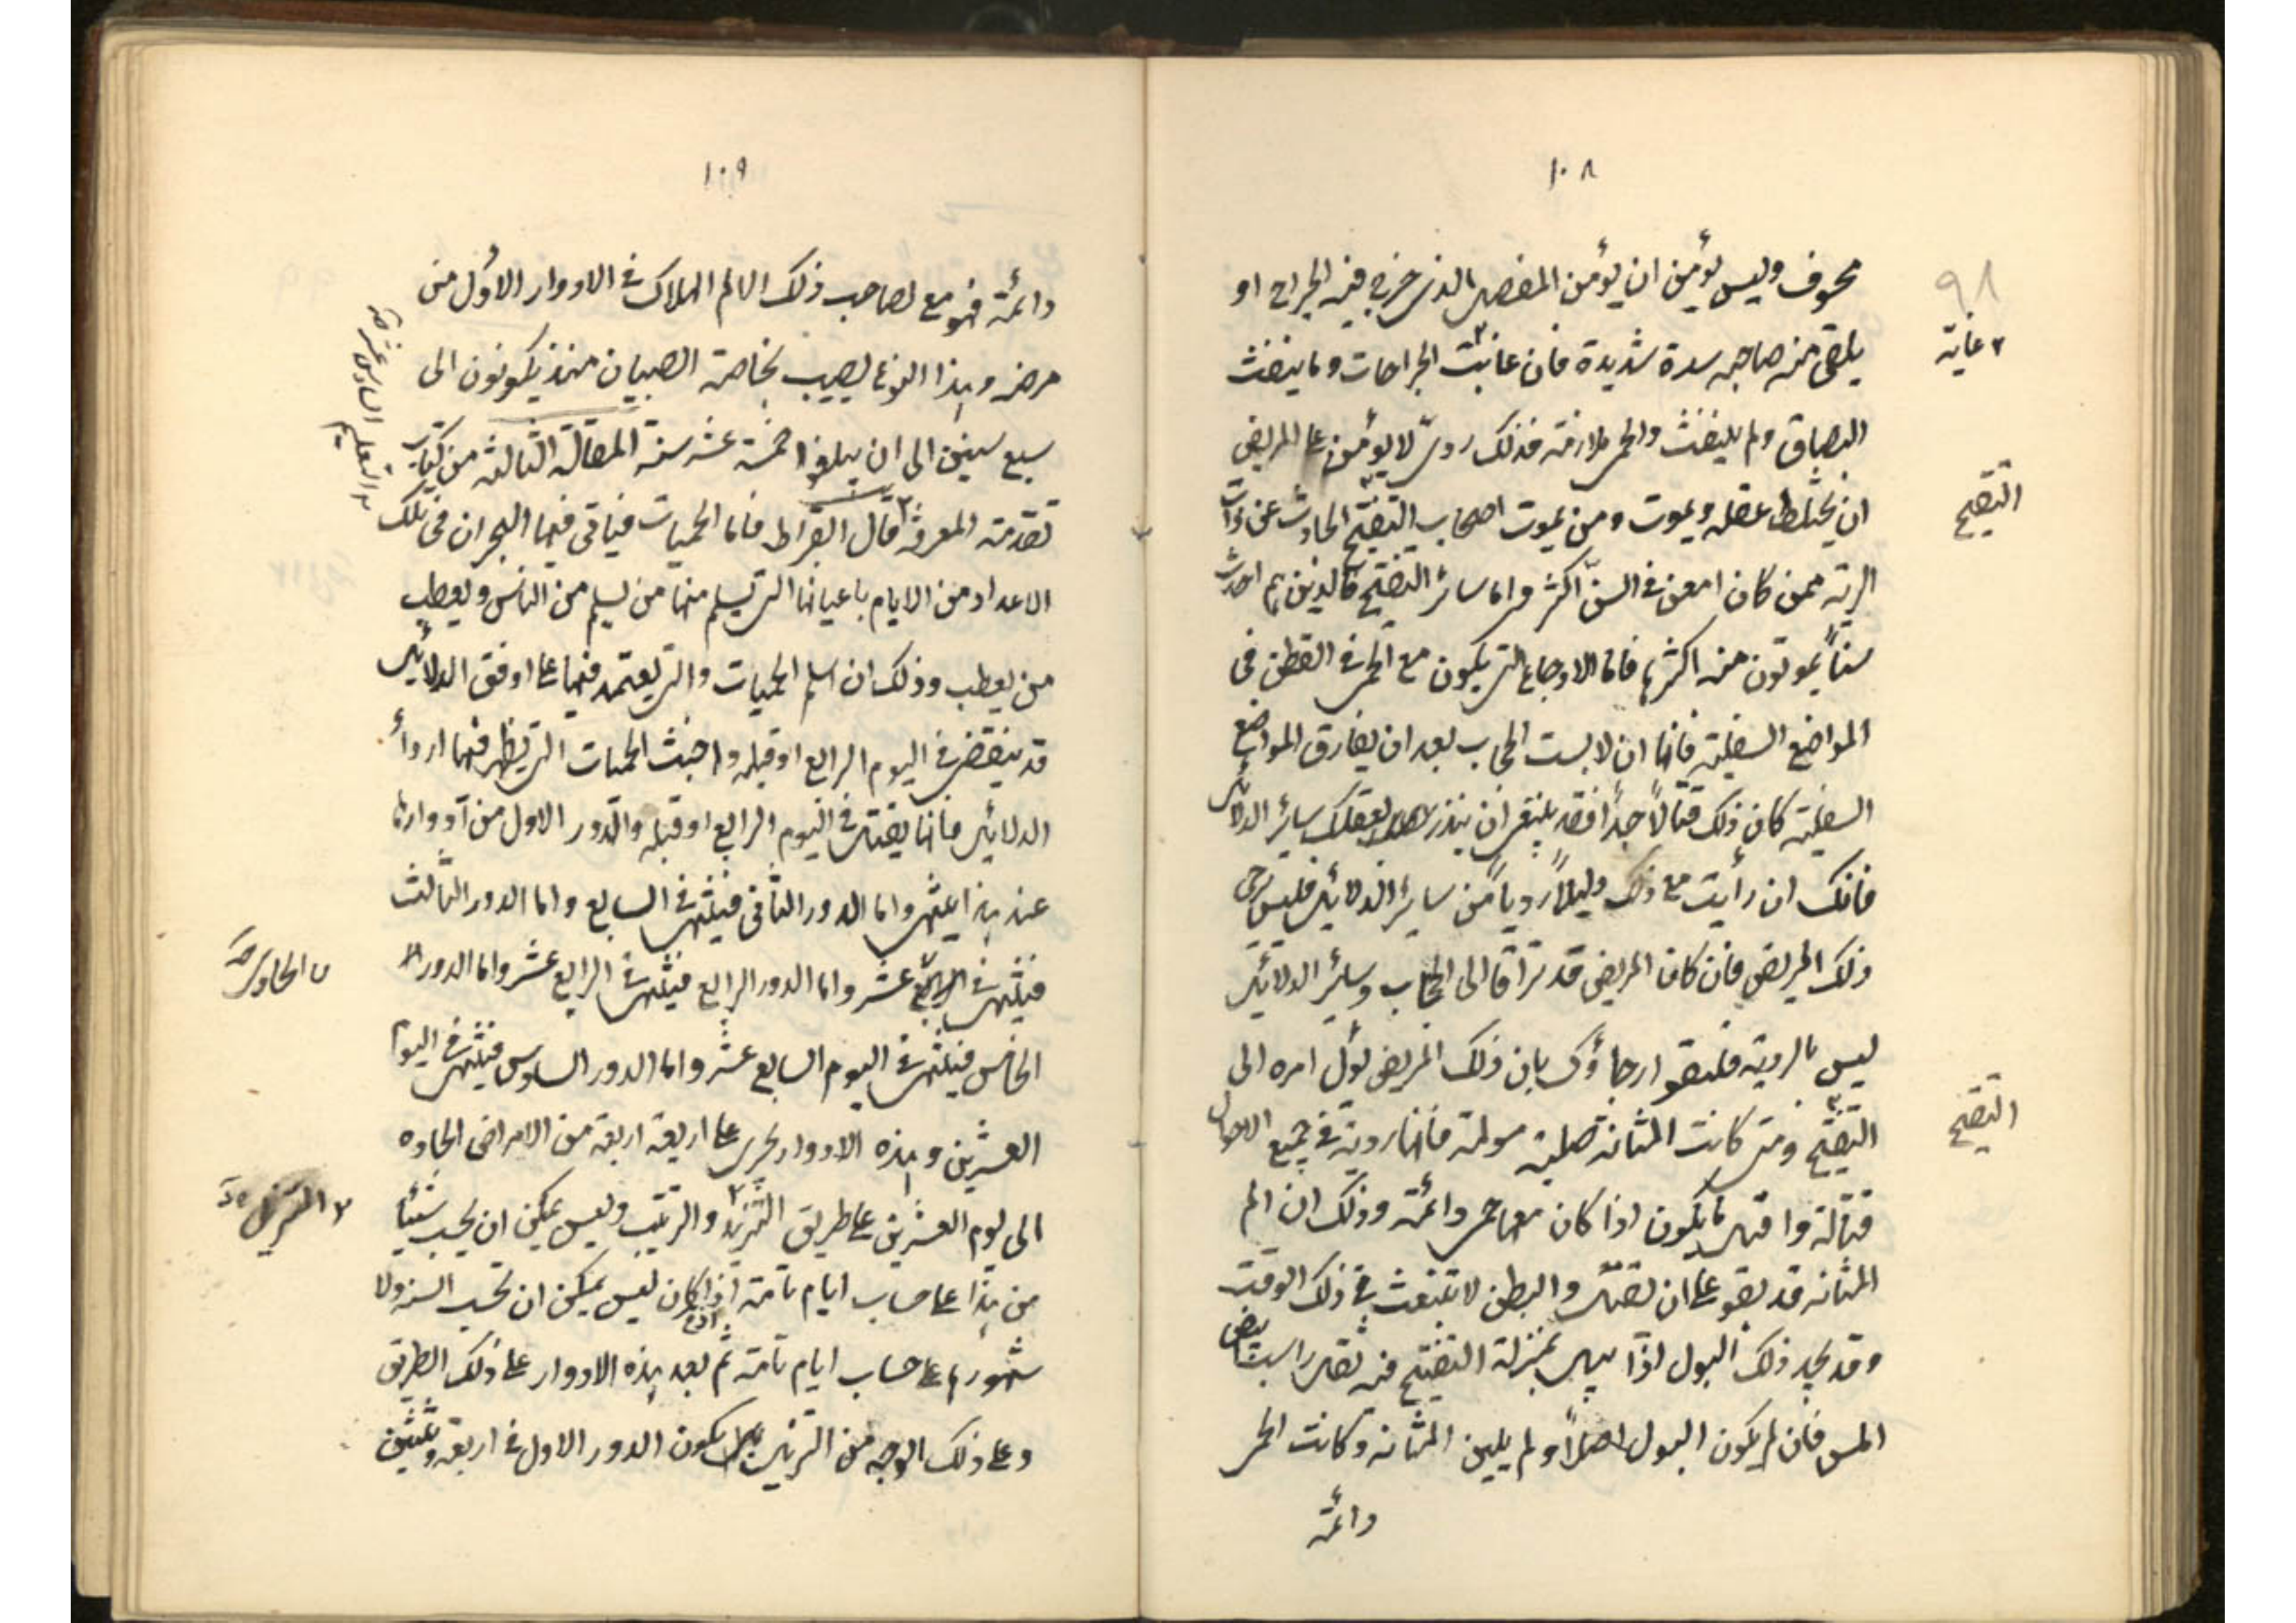 ١٠٨
٩٨
مخوف وليس يؤمن ان يؤمن المفصل الذى خرج فيه الجراح او
يلقى منه صاحبه سدة شديدة فان غابت الجراحات وما ينفث
٢ غاية
البصاق ولم ينفث والحمى ملازمة فذلك ردىّ لا يؤمن على المريض
ان يختلط عقله ويموت ومن يموت اصحاب التقيّح الحادث عن ذات
التقيح
الرية ممن كان امعن فى السنّ اكثر واما سائر التقيّح فالذين هم احدث
سناً يموتون منه اكثر فاما الاوجاع التى يكون مع الحمى فى القطن فى
المواضع السفلية فانها ان لابست الحجاب بعد ان يفارق المواضع
السفلية كان ذلك قتالاً جداً فقد ينبغى ان ينذر بعقلك سائر الدلائل
فانك ان رأيت مع ذلك دليلاً ردياً من سائر الدلائل فليس يرجى
ذلك المريض فان كان المريض قد تراقا الى الحجاب وسائر الدلائل
ليس بالردية فليقو ارجاؤك بان ذلك المريض يؤل امره الى
التقيّح ومتى كانت المثانة صلبة مولمة فانها ردية فى جميع الاحوال
التقيح
قتالة واقتل ما يكون اذا كان معها حمى دائمة وذلك ان الم
المثانه قد يقوى على ان يقتل والبطن لا تنبعث فى ذلك الوقت
وقد يحد ذلك البول اذا يبل بمنزلة التقيّح فيه ثفل راسب ابيض
املس فان لم يكون البول اصلاً ولم يلين المثانه وكانت الحمى
دائمة
١٠٩
دائمة فهو مع لصاحب ذلك الالم الهلاك فى الادوار الاول من
مرضه وهذا النوع يصيب بخاصة الصبيان منذ يكونون الى
سبع سنين الى ان يبلغوا خمسة عشر سنة المقالة الثالثة من كتاب
التعليم السادس عشر
تقدمة المعرفة قال ابقراط فاما الحميات فياتى فيها البحران فى تلك
الاعداد من الايام باعيانها التى يسلم منها من يسلم من الناس ويعطب
من يعطب وذلك ان اسلم الحميات والتى يعتمد فيها على اوفق الدلائل
قد ينقضى فى اليوم الرابع او قبله واخبث الحميات التى يظهر فيها اردأ
الدلائل فانها يقتل فى اليوم الرابع او قبله والدور الاول من ادوارها
عند هذا ينتهى واما الدور الثانى فينتهى فى السابع واما الدور الثالث
فينتهى فى عشر واما الدور الرابع فينتهى فى الرابع عشر واما الدور
الحادى
الخامس فينتهى فى اليوم السابع عشر واما الدور السادس فينتهى فى اليوم
العشرين وهذه الادوار يجرى على اربعة اربعة من الامراض الحاده
الى يوم العشرين على طريق التزيد والرتيب وليس يمكن ان يحسب شيئا
من هذا على حساب ايام تامة اذا كان ليس يمكن ان تحسب السنه ولا
شهورها على حساب ايام تامة ثم بعد هذه الادوار على ذلك الطريق
وعلى ذلك الوجه من التزيد يكون الدور الاول فى اربعة وثلثين